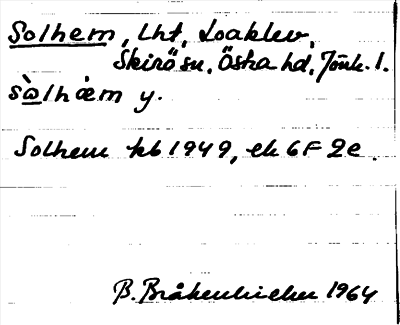 Solhem, Lht, Loaklev,
Skirö sn, Östra hd, Jönk. l.
sὼlhæ̀m y.
Solhem kb 1949, ek 6F 2e.
B. Bråkenhielm 1964